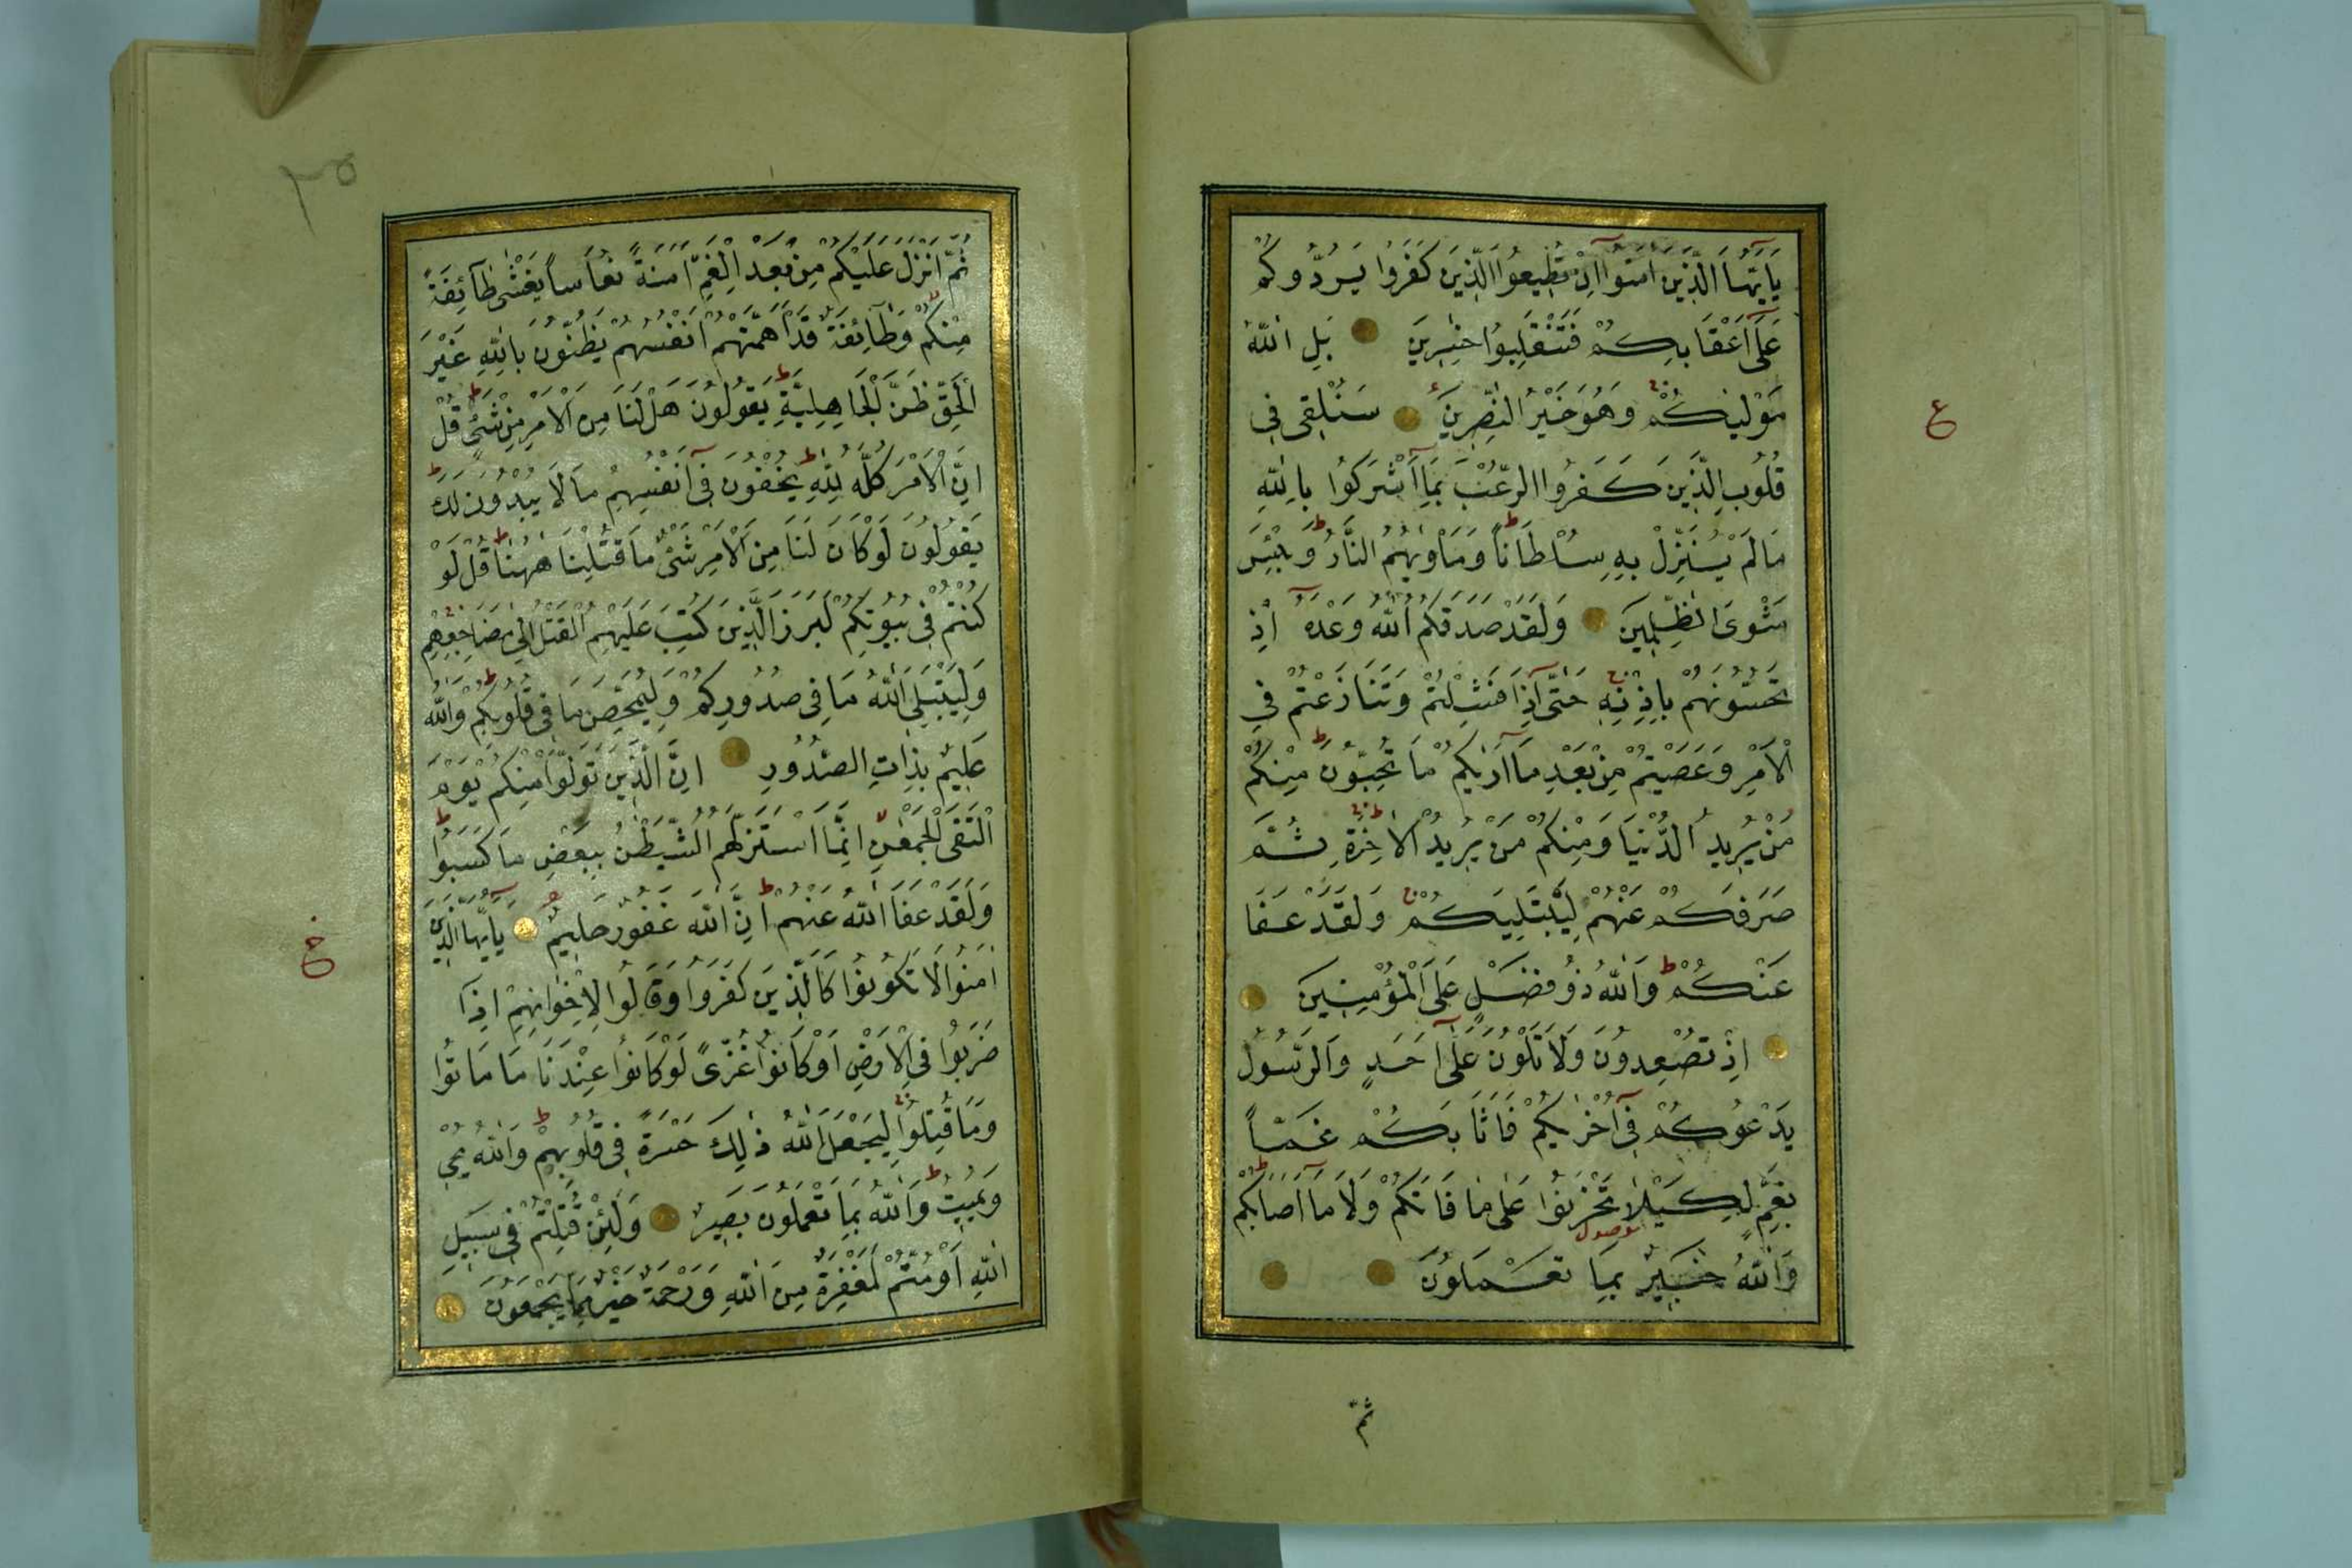 يَا اَيُّهَا الَّذِينَ اٰمَنُوا اِنْ تُطِيعُوا الَّذِينَ كَفَرُوا يَرُدُّوكُمْ
عَلٰٓى اَعْقَابِكُمْ فَتَنْقَلِبُوا خٰسِرِينَ بَلِ اللّٰهُ
مَوْلٰيكُمْ وَهُوَ خَيْرُ النّٰصِرِينَ سَنُلْقِى فِى
قُلُوبِ الَّذِينَ كَفَرُوا الرُّعْبَ بِمَٓا اَشْرَكُوا بِاللّٰهِ
مَا لَمْ يُنَزِّلْ بِهِ سُلْطَانًا وَمَأْوٰيهُمُ النَّارُ وَبِئْسَ
مَثْوَى الظّٰلِمِينَ وَلَقَدْ صَدَقَكُمُ اللّٰهُ وَعْدَهُٓ اِذْ
تَحُسُّونَهُمْ بِاِذْنِهِ حَتّٰٓى اِذَا فَشِلْتُمْ وَتَنَازَعْتُمْ فِى
الْاَمْرِ وَعَصَيْتُمْ مِنْ بَعْدِ مَٓا اَرٰيكُمْ مَا تُحِبُّونَ مِنْكُمْ
مَنْ يُرِيدُ الدُّنْيَا وَمِنْكُمْ مَنْ يُرِيدُ الْاٰخِرَةَ ثُمَّ
صَرَفَكُمْ عَنْهُمْ لِيَبْتَلِيَكُمْ وَلَقَدْ عَفَا
عَنْكُمْ وَاللّٰهُ ذُو فَضْلٍ عَلَى الْمُؤْمِنِينَ
اِذْ تُصْعِدُونَ وَلَا تَلْوُنَ عَلٰٓى اَحَدٍ وَالرَّسُولُ
يَدْعُوكُمْ فِٓى اُخْرٰيكُمْ فَاَثَابَكُمْ غَمًّا
بِغَمٍّ لِكَيْلَا تَحْزَنُوا عَلٰى مَا فَاتَكُمْ وَلَا مَٓا اَصَابَكُمْ
موصول
وَاللّٰهُ خَبِيرٌ بِمَا تَعْمَلُونَ
ثُمَّ
ع
٣٥
ثُمَّ اَنْزَلَ عَلَيْكُمْ مِنْ بَعْدِ الْغَمِّ اَمَنَةً نُعَاسًا يَغْشٰى طَٓائِفَةً
مِنْكُمْ وَطَٓائِفَةٌ قَدْ اَهَمَّتْهُمْ اَنْفُسُهُمْ يَظُنُّونَ بِاللّٰهِ غَيْرَ
الْحَقِّ ظَنَّ الْجَاهِلِيَّةِ يَقُولُونَ هَلْ لَنَا مِنَ الْاَمْرِ مِنْ شَىْءٍ قُلْ
اِنَّ الْاَمْرَ كُلَّهُ لِلّٰهِ يُخْفُونَ فِٓى اَنْفُسِهِمْ مَا لَا يُبْدُونَ لَكَ
يَقُولُونَ لَوْ كَانَ لَنَا مِنَ الْاَمْرِ شَىْءٌ مَا قُتِلْنَا هٰهُنَا قُلْ لَوْ
كُنْتُمْ فِى بُيُوتِكُمْ لَبَرَزَ الَّذِينَ كُتِبَ عَلَيْهِمُ الْقَتْلُ اِلٰى مَضَاجِعِهِمْ
وَلِيَبْتَلِىَ اللّٰهُ مَا فِى صُدُورِكُمْ وَلِيُمَحِّصَ مَا فِى قُلُوبِكُمْ وَاللّٰهُ
عَلِيمٌ بِذَاتِ الصُّدُورِ اِنَّ الَّذِينَ تَوَلَّوْا مِنْكُمْ يَوْمَ
الْتَقَى الْجَمْعٰنِ اِنَّمَا اسْتَزَلَّهُمُ الشَّيْطٰنُ بِبَعْضِ مَا كَسَبُوا
وَلَقَدْ عَفَا اللّٰهُ عَنْهُمْ اِنَّ اللّٰهَ غَفُورٌ حَلِيمٌ يَٓا اَيُّهَا الَّذِينَ
اٰمَنُوا لَا تَكُونُوا كَالَّذِينَ كَفَرُوا وَقَالُوا لِاِخْوَانِهِمْ اِذَا
ضَرَبُوا فِى الْاَرْضِ اَوْ كَانُوا غُزًّى لَوْ كَانُوا عِنْدَنَا مَا مَاتُوا
وَمَا قُتِلُوا لِيَجْعَلَ اللّٰهُ ذٰلِكَ حَسْرَةً فِى قُلُوبِهِمْ وَاللّٰهُ يُحْىِ
وَيُمِيتُ وَاللّٰهُ بِمَا تَعْمَلُونَ بَصِيرٌ وَلَئِنْ قُتِلْتُمْ فِى سَبِيلِ
اللّٰهِ اَوْ مُتُّمْ لَمَغْفِرَةٌ مِنَ اللّٰهِ وَرَحْمَةٌ خَيْرٌ مِمَّا يَجْمَعُونَ